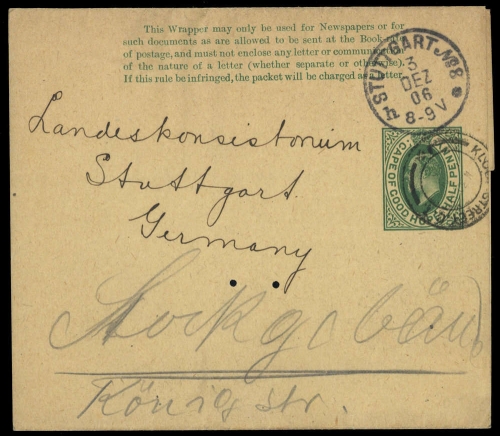 This Wrapper may only be used for Newspapers or for
such documents as are allowed to be sent at the Book-
of postage, and must not enclose any letter or
of the nature of a letter (whether separate or otherwise).
If this rule be infringed, the packet will be charged as a letter.
STUTTGART No 8
3
DEZ
06
8-9 V
Landeskonsistorium
Stuttgart
Germany
CAPE OF GOOD HOPE
HALF PENNY
STREET
Königstr.